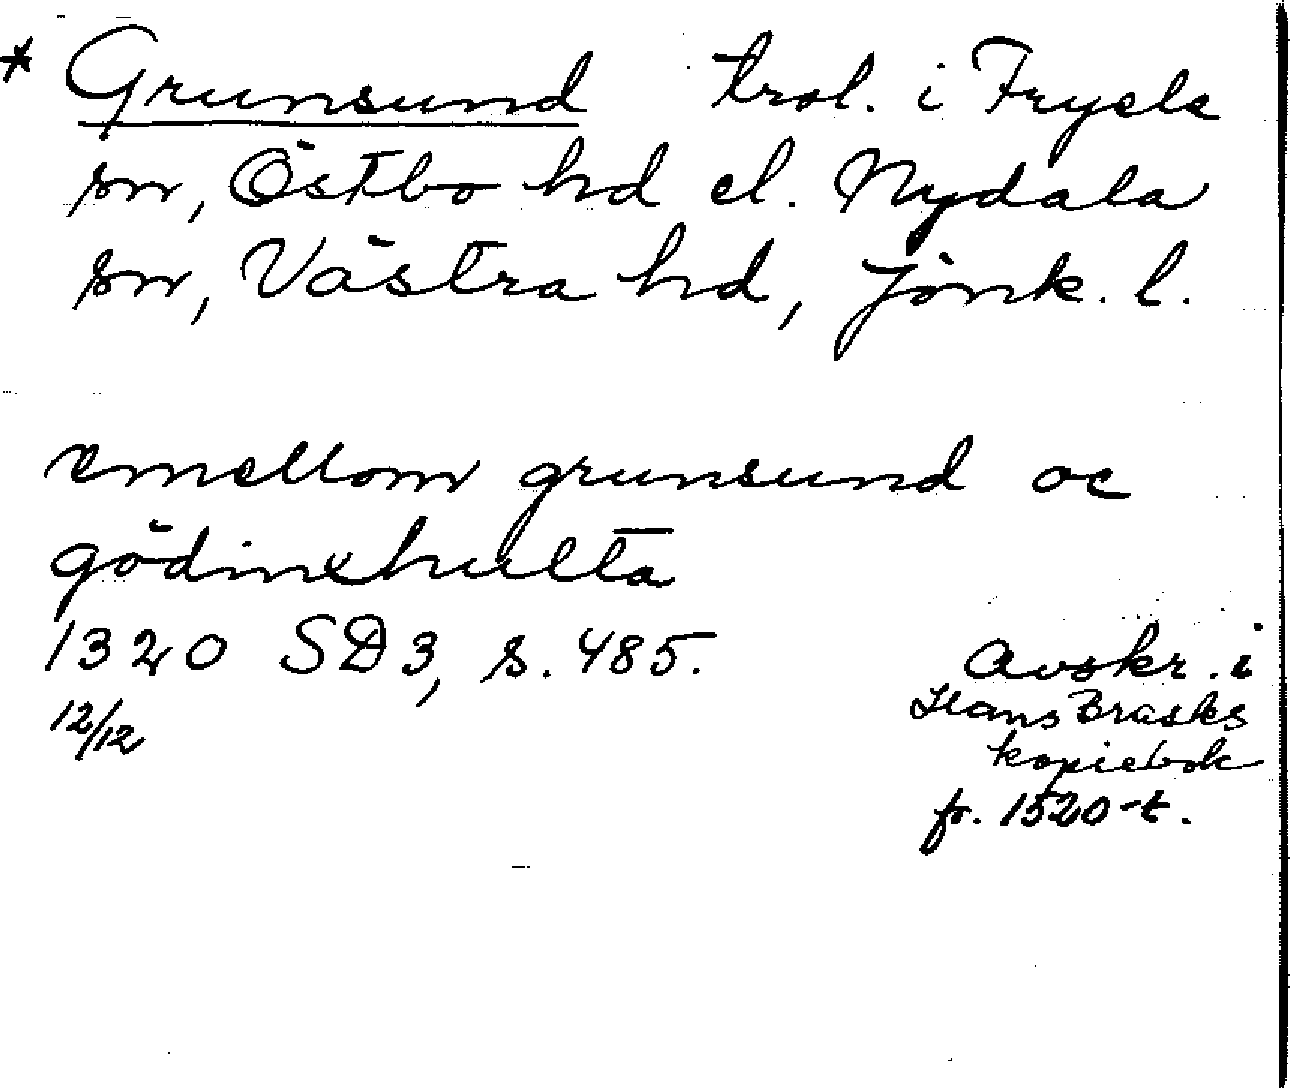 * Grunsund trol. i Fryele
sn, Östbo hd el. Nydala
sn, Västra hd, Jönk. l.
emellom grunsund oc
gödinxhulta
1320 SD 3, s. 485.
12/12
Avskr. i
Hans Brasks
kopiebok
fr. 1520-t.